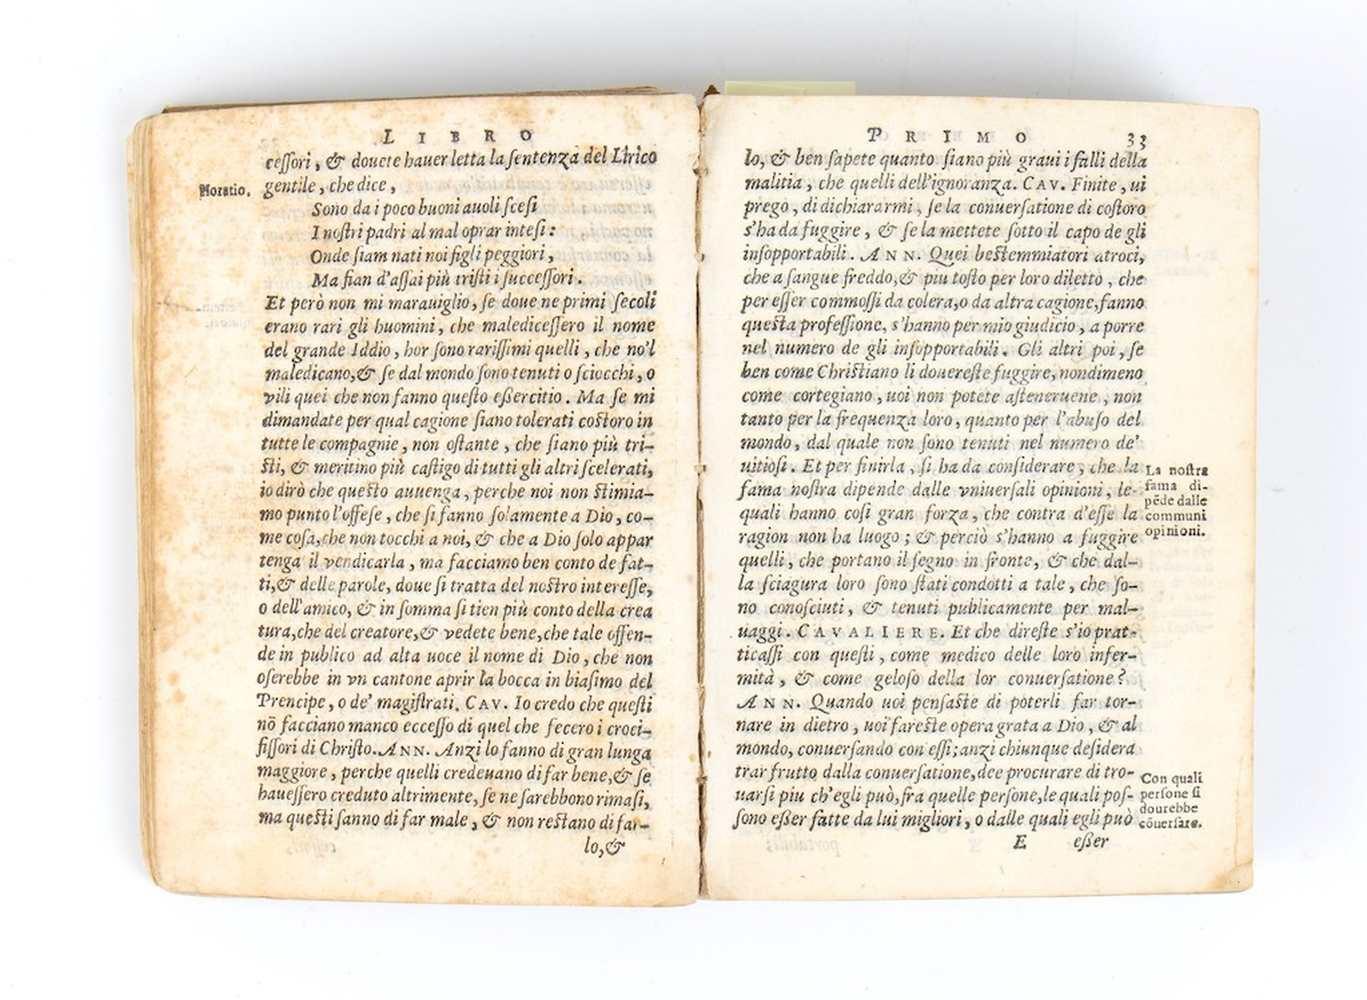 LIBRO
ceſſori, & douete hauer letta la ſentenza del Lirico
Horatio.
gentile, che dice,
Sono da i poco buoni auoli ſceſi
I noſtri padri al mal oprar inteſi:
Onde ſiam nati noi figli peggiori,
Ma fian d'aſſai più triſti i ſucceſſori.
Et però non mi marauiglio, ſe doue ne primi ſecoli
erano rari gli huomini, che malediceſſero il nome
del grande Iddio, hor ſono rariſſimi quelli, che no'l
maledicano, & ſe dal mondo ſono tenuti o ſciocchi, o
vili quei che non fanno queſto eßercitio. Ma ſe mi
dimandate per qual cagione ſiano tolerati coſtoro in
tutte le compagnie, non oſtante, che ſiano più tri-
ſti, & meritino più caſtigo di tutti gli altri ſcelerati,
io dirò che queſto auuenga, perche noi non ſtimia-
mo punto l'offeſe, che ſi fanno ſolamente a Dio, co-
me coſa, che non tocchi a noi, & che a Dio ſolo appar
tenga il vendicarla, ma facciamo ben conto de fat-
ti, & delle parole, doue ſi tratta del noſtro intereſſe,
o dell'amico, & in ſomma ſi tien più conto della crea
tura, che del creatore, & vedete bene, che tale offen-
de in publico ad alta uoce il nome di Dio, che non
oſerebbe in vn cantone aprir la bocca in biaſimo del
Prencipe, o de' magiſtrati. CAV. Io credo che queſti
nō facciano manco ecceſſo di quel che fecero i croci-
fiſſori di Chriſto. ANN. Anzi lo fanno di gran lunga
maggiore, perche quelli credeuano di far bene, & ſe
haueſſero creduto altrimente, ſe ne ſarebbono rimaſi,
ma queſti ſanno di far male, & non reſtano di far-
lo, &
PRIMO 33
lo, & ben ſapete quanto ſiano più graui i falli della
malitia, che quelli dell'ignoranza. CAV. Finite, ui
prego, di dichiararmi, ſe la conuerſatione di coſtoro
s'ha da fuggire, & ſe la mettete ſotto il capo de gli
inſopportabili. ANN. Quei beſtemmiatori atroci,
che a ſangue freddo, & piu toſto per loro diletto, che
per eſſer commoſſi da colera, o da altra cagione, fanno
queſta profeſſione, s'hanno per mio giudicio, a porre
nel numero de gli inſopportabili. Gli altri poi, ſe
ben come Chriſtiano li douereſte fuggire, nondimeno
come cortegiano, uoi non potete aſteneruene, non
tanto per la frequenza loro, quanto per l'abuſo del
mondo, dal quale non ſono tenuti nel numero de'
uitioſi. Et per finirla, ſi ha da conſiderare, che la
fama noſtra dipende dalle vniuerſali opinioni, le-
quali hanno coſi gran forza, che contra d'eſſe la
ragion non ha luogo; & perciò s'hanno a fuggire
quelli, che portano il ſegno in fronte, & che dal-
la ſciagura loro ſono ſtati condotti a tale, che ſo-
no conoſciuti, & tenuti publicamente per mal-
uaggi. CAVALIERE. Et che direſte s'io prat-
ticaſſi con queſti, come medico delle loro infer-
mità, & come geloſo della lor conuerſatione?
ANN. Quando uoi penſaſte di poterli far tor-
nare in dietro, uoi fareſte opera grata a Dio, & al
mondo, conuerſando con eſſi; anzi chiunque deſidera
trar frutto dalla conuerſatione, dee procurare di tro-
uarſi piu ch'egli può, fra quelle perſone, le quali poſ-
ſono eßer fatte da lui migliori, o dalle quali egli può
E eßer
La noſtra
fama di-
pēde dalle
communi
opinioni.
Con quali
perſone ſi
dourebbe
cōuerſare.